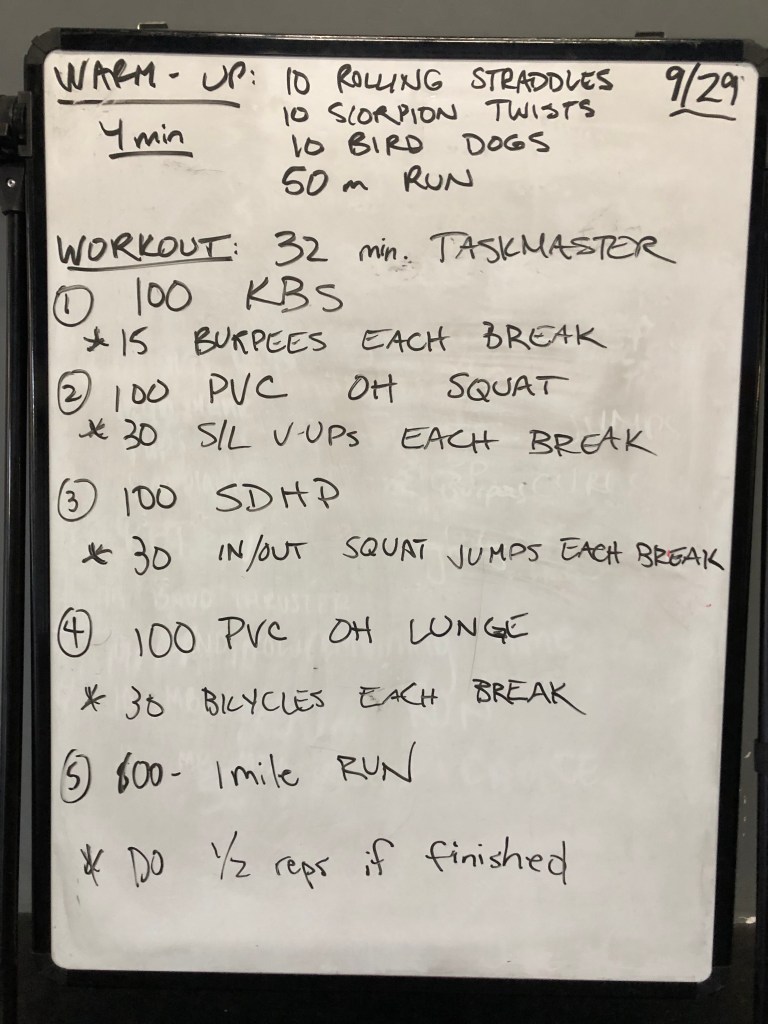 WARM-UP: 10 ROLLING STRADDLES 9/29
4 min 10 SCORPION TWISTS
10 BIRD DOGS
50 m RUN
WORKOUT: 32 min. TASKMASTER
① 100 KBS
* 15 BURPEES EACH BREAK
② 100 PVC OH SQUAT
* 30 S/L V-UPs EACH BREAK
③ 100 SDHP
* 30 IN/OUT SQUAT JUMPS EACH BREAK
④ 100 PVC OH LUNGE
* 30 BICYCLES EACH BREAK
⑤ 800- 1 mile RUN
* DO 1/2 reps if finished